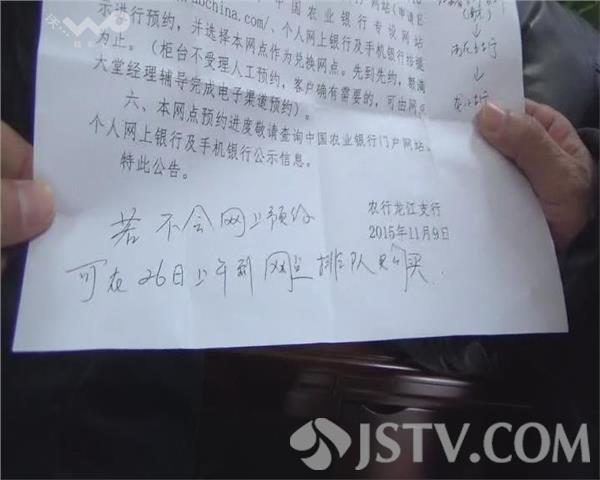 示进行预约,并选择本网点作为兑换网点。先到先约,额满
为止。(柜台不受理人工预约,客户确有需要的,可由网点
大堂经理辅导完成电子渠道预约)。
六、本网点预约进度敬请查询中国农业银行门户网站、
个人网上银行及手机银行公示信息。
特此公告。
农行龙江支行
2015年11月9日
若不会网上预约
可在26日上午到网点排队购买.
JSTV.COM